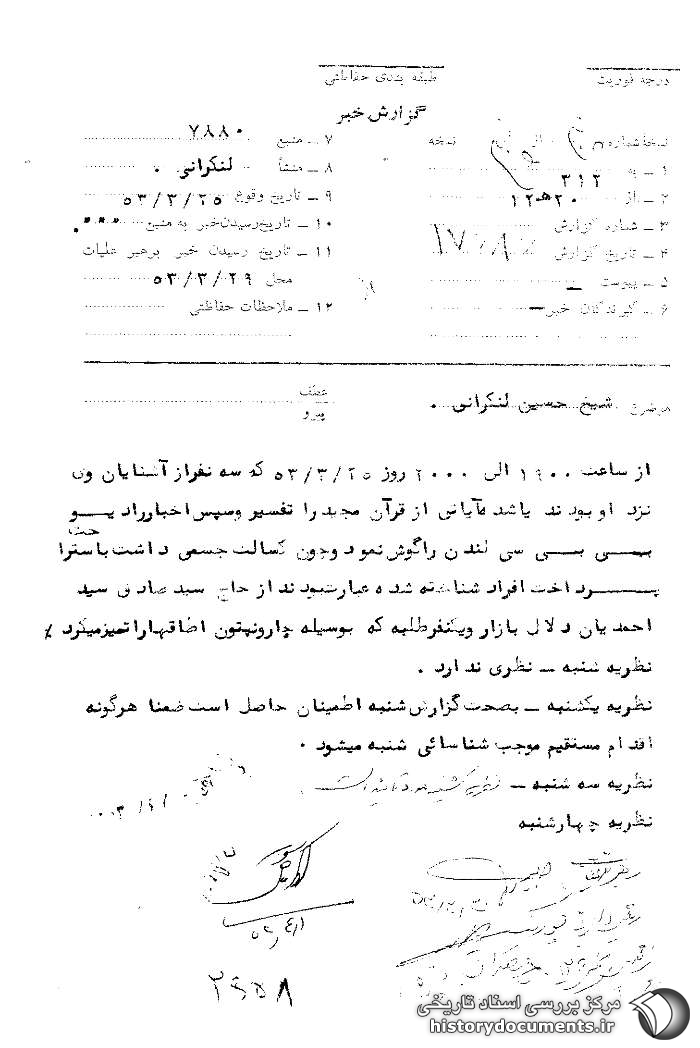 درجه فوریت
طبقه بندی حفاظتی
گزارش خبر
نسخه شماره نسخه
۱ ـ به ۳۱۲
۲ ـ از ۲۰هـ۱۲
۳ ـ شماره گزارش
۴ ـ تاریخ گزارش
۵ ـ پیوست ـ
۶ ـ گیرندگان خبر ـ
۷ ـ منبع ۷۸۸۰
۸ ـ منشأ لنکرانی .
۹ ـ تاریخ وقوع ۵۳/۳/۲۵
۱۰ ـ تاریخ رسیدن خبر به منبع
۱۱ ـ تاریخ رسیدن خبر برهبر عملیات
محل ۵۳/۳/۲۹
۱۲ ـ ملاحظات حفاظتی
موضوع شیخ حسین لنکرانی .
عطف
پیرو
از ساعت ۱۹۰۰ الی ۲۰۰۰ روز ۵۳/۳/۲۵ که سه نفراز آشنایان وی
نزد او بودند یاشد مآیاتی از قرآن مجید را تفسیر وسپس اخباررادیــو
بــی بــی سی لندن راگوش نمود وچون کسالت جسمی داشت باسترا حت
پــرداخت افراد شناخته شده عبارتبودند از حاج سید صادق سید
احمدیان دلال بازار ویکنفرطلبه که بوسیله چارونپتون اطاقهاراتمیزمیکرد ٪
نظریه شنبه ـ نظری ندارد .
نظریه یکشنبه ـ بصحت گزارش شنبه اطمینان حاصل است ضمنا هرگونه
اقدام مستقیم موجب شناسائی شنبه میشود .
نظریه سه شنبه ـ نظریه یکشنبه مورد تائید است
نظریه چهارشنبه
۲۶۵۸
مرکز بررسی اسناد تاریخی
historydocuments.ir